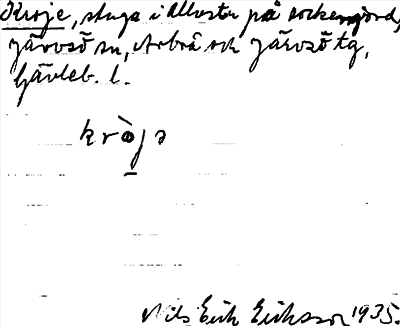 Kroje, stuga i Ullvsta på sockengård,
Järvsö sn, Arbrå och Järvsö tg,
Gävleb. l.
kròjə
Nils Erik Eriksson 1935.